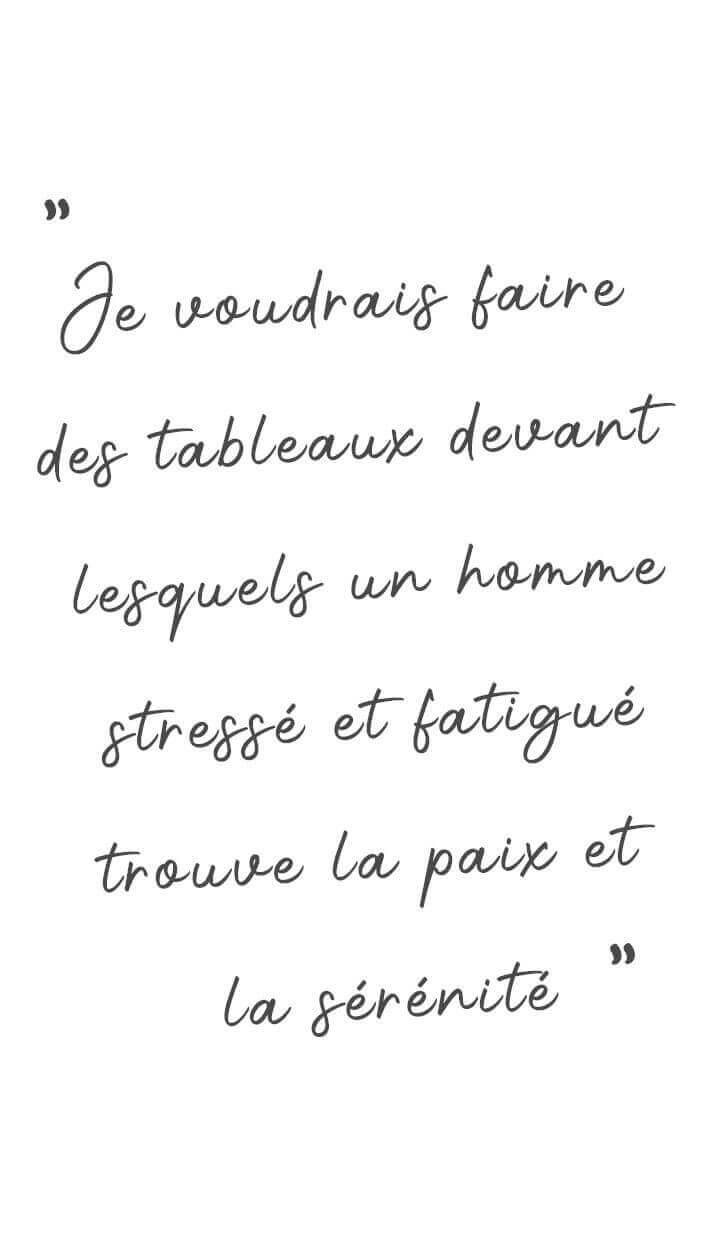 ”
Je voudrais faire
des tableaux devant
lesquels un homme
stressé et fatigué
trouve la paix et
la sérénité ”